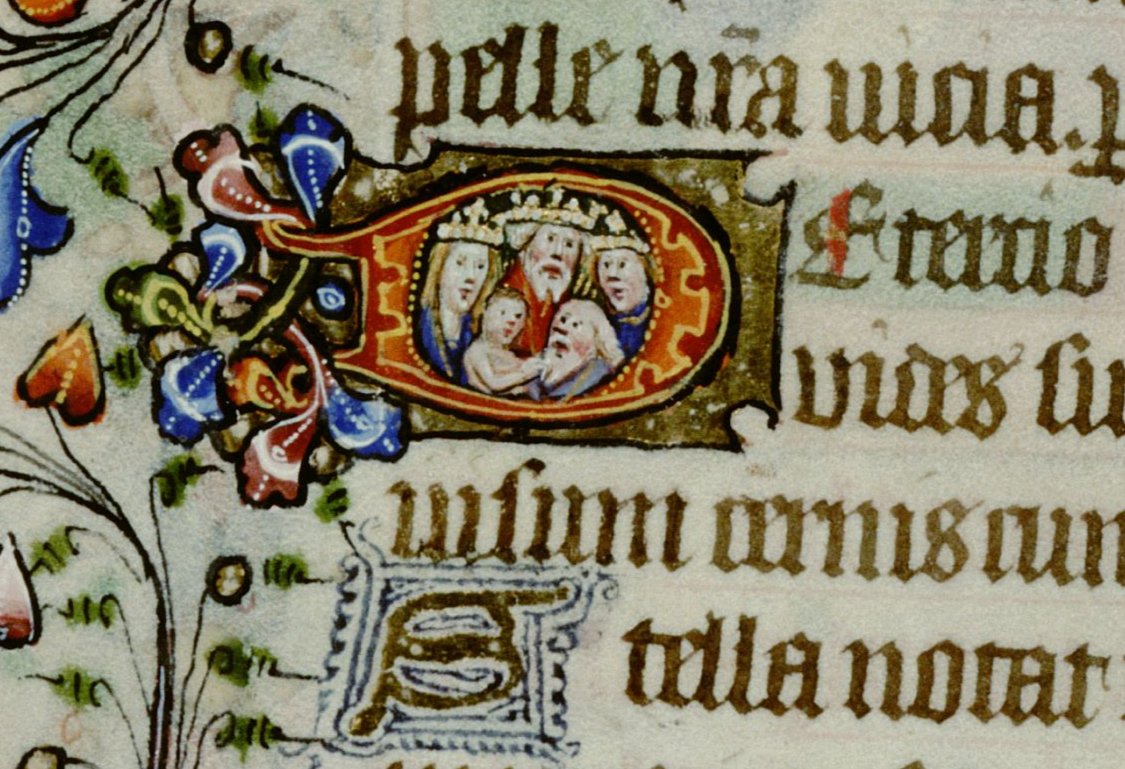 pelle nr̄a uicia. p
Eterno
uices su
uisum cernis cun
Stella notat